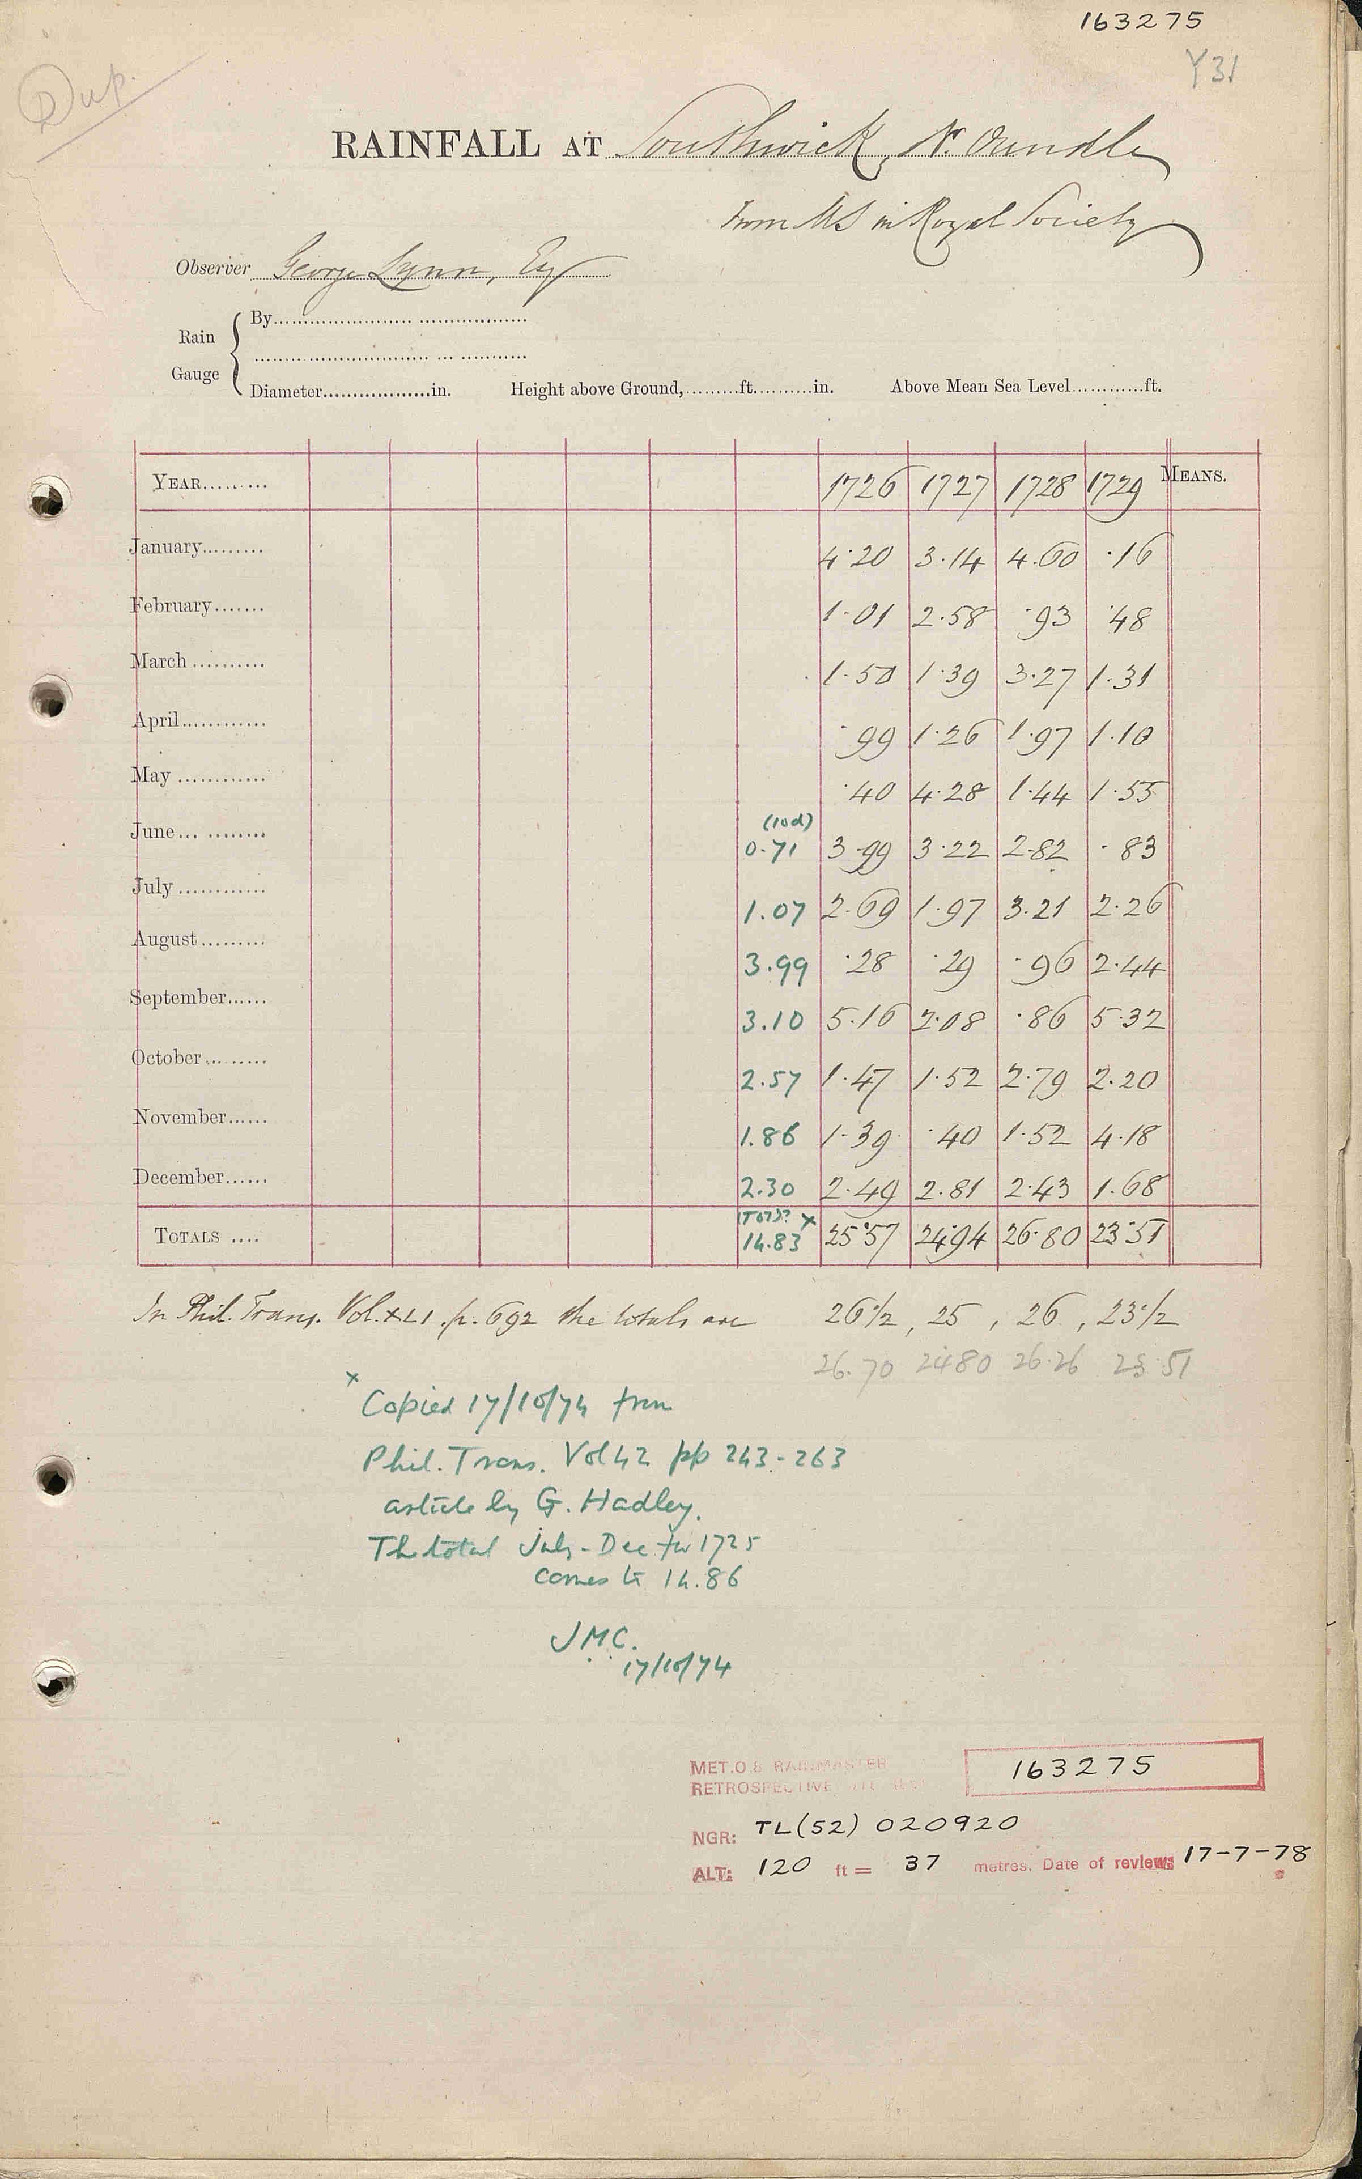 163275
Y31
Dup.
RAINFALL AT Southwick, Nr. Oundle
From MS in Royal Society
Observer George Lynn, Esq
Rain Gauge { By
Diameter in. Height above Ground, ft. in. Above Mean Sea Level ft.
YEAR 1726 1727 1728 1729 MEANS.
January 4.20 3.14 4.60 .16
February 1.01 2.58 .93 .48
March 1.50 1.39 3.27 1.31
April .99 1.26 1.97 1.10
May .40 4.28 1.44 1.55
(10d)
June 0.71 3.99 3.22 2.82 .83
July 1.07 2.69 1.97 3.21 2.26
August 3.99 .28 .29 .96 2.44
September 3.10 5.16 2.08 .86 5.32
October 2.57 1.47 1.52 2.79 2.20
November 1.86 1.39 .40 1.52 4.18
December 2.30 2.49 2.81 2.43 1.68
x
TOTALS 14.83 25.57 24.94 26.80 23.51
In Phil. Trans. Vol. XLI. p. 692 the totals are 26 1/2, 25, 26, 23 1/2
26.70 24.80 26.26 23.51
x Copied 17/10/74 from
Phil. Trans. Vol 42 pp 243-263
article by G. Hadley.
The total July-Dec for 1725
comes to 14.86
J.M.C.
17/10/74
MET.O.8 RAINMASTER
RETROSPECTIVE 163275
NGR: TL(52) 020920
ALT: 120 ft = 37 metres. Date of review: 17-7-78